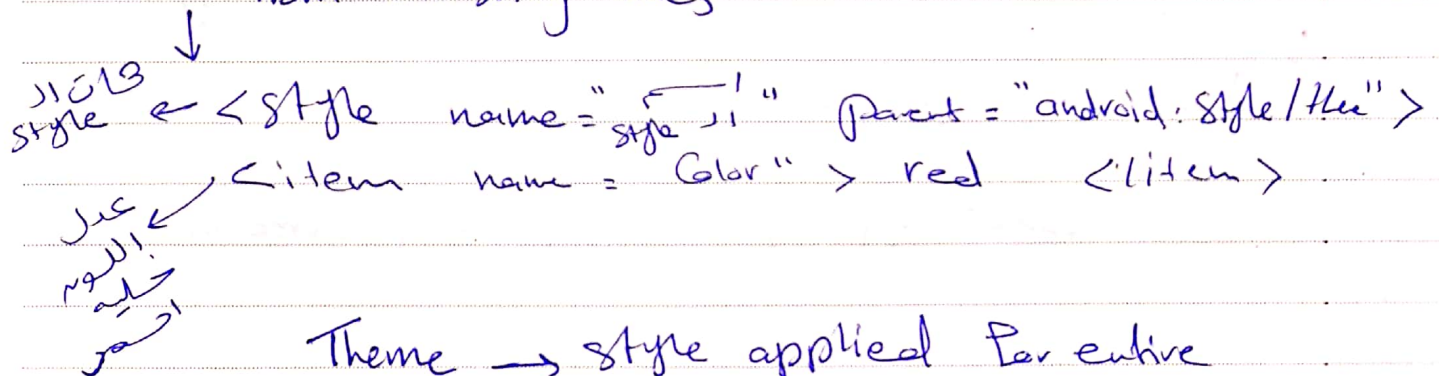 هات ال style ← <style name="اسم ال style" parent="android:style/the">
<item name = Color" > red </item>
عدل اللون خليه احمر
Theme → style applied for entire